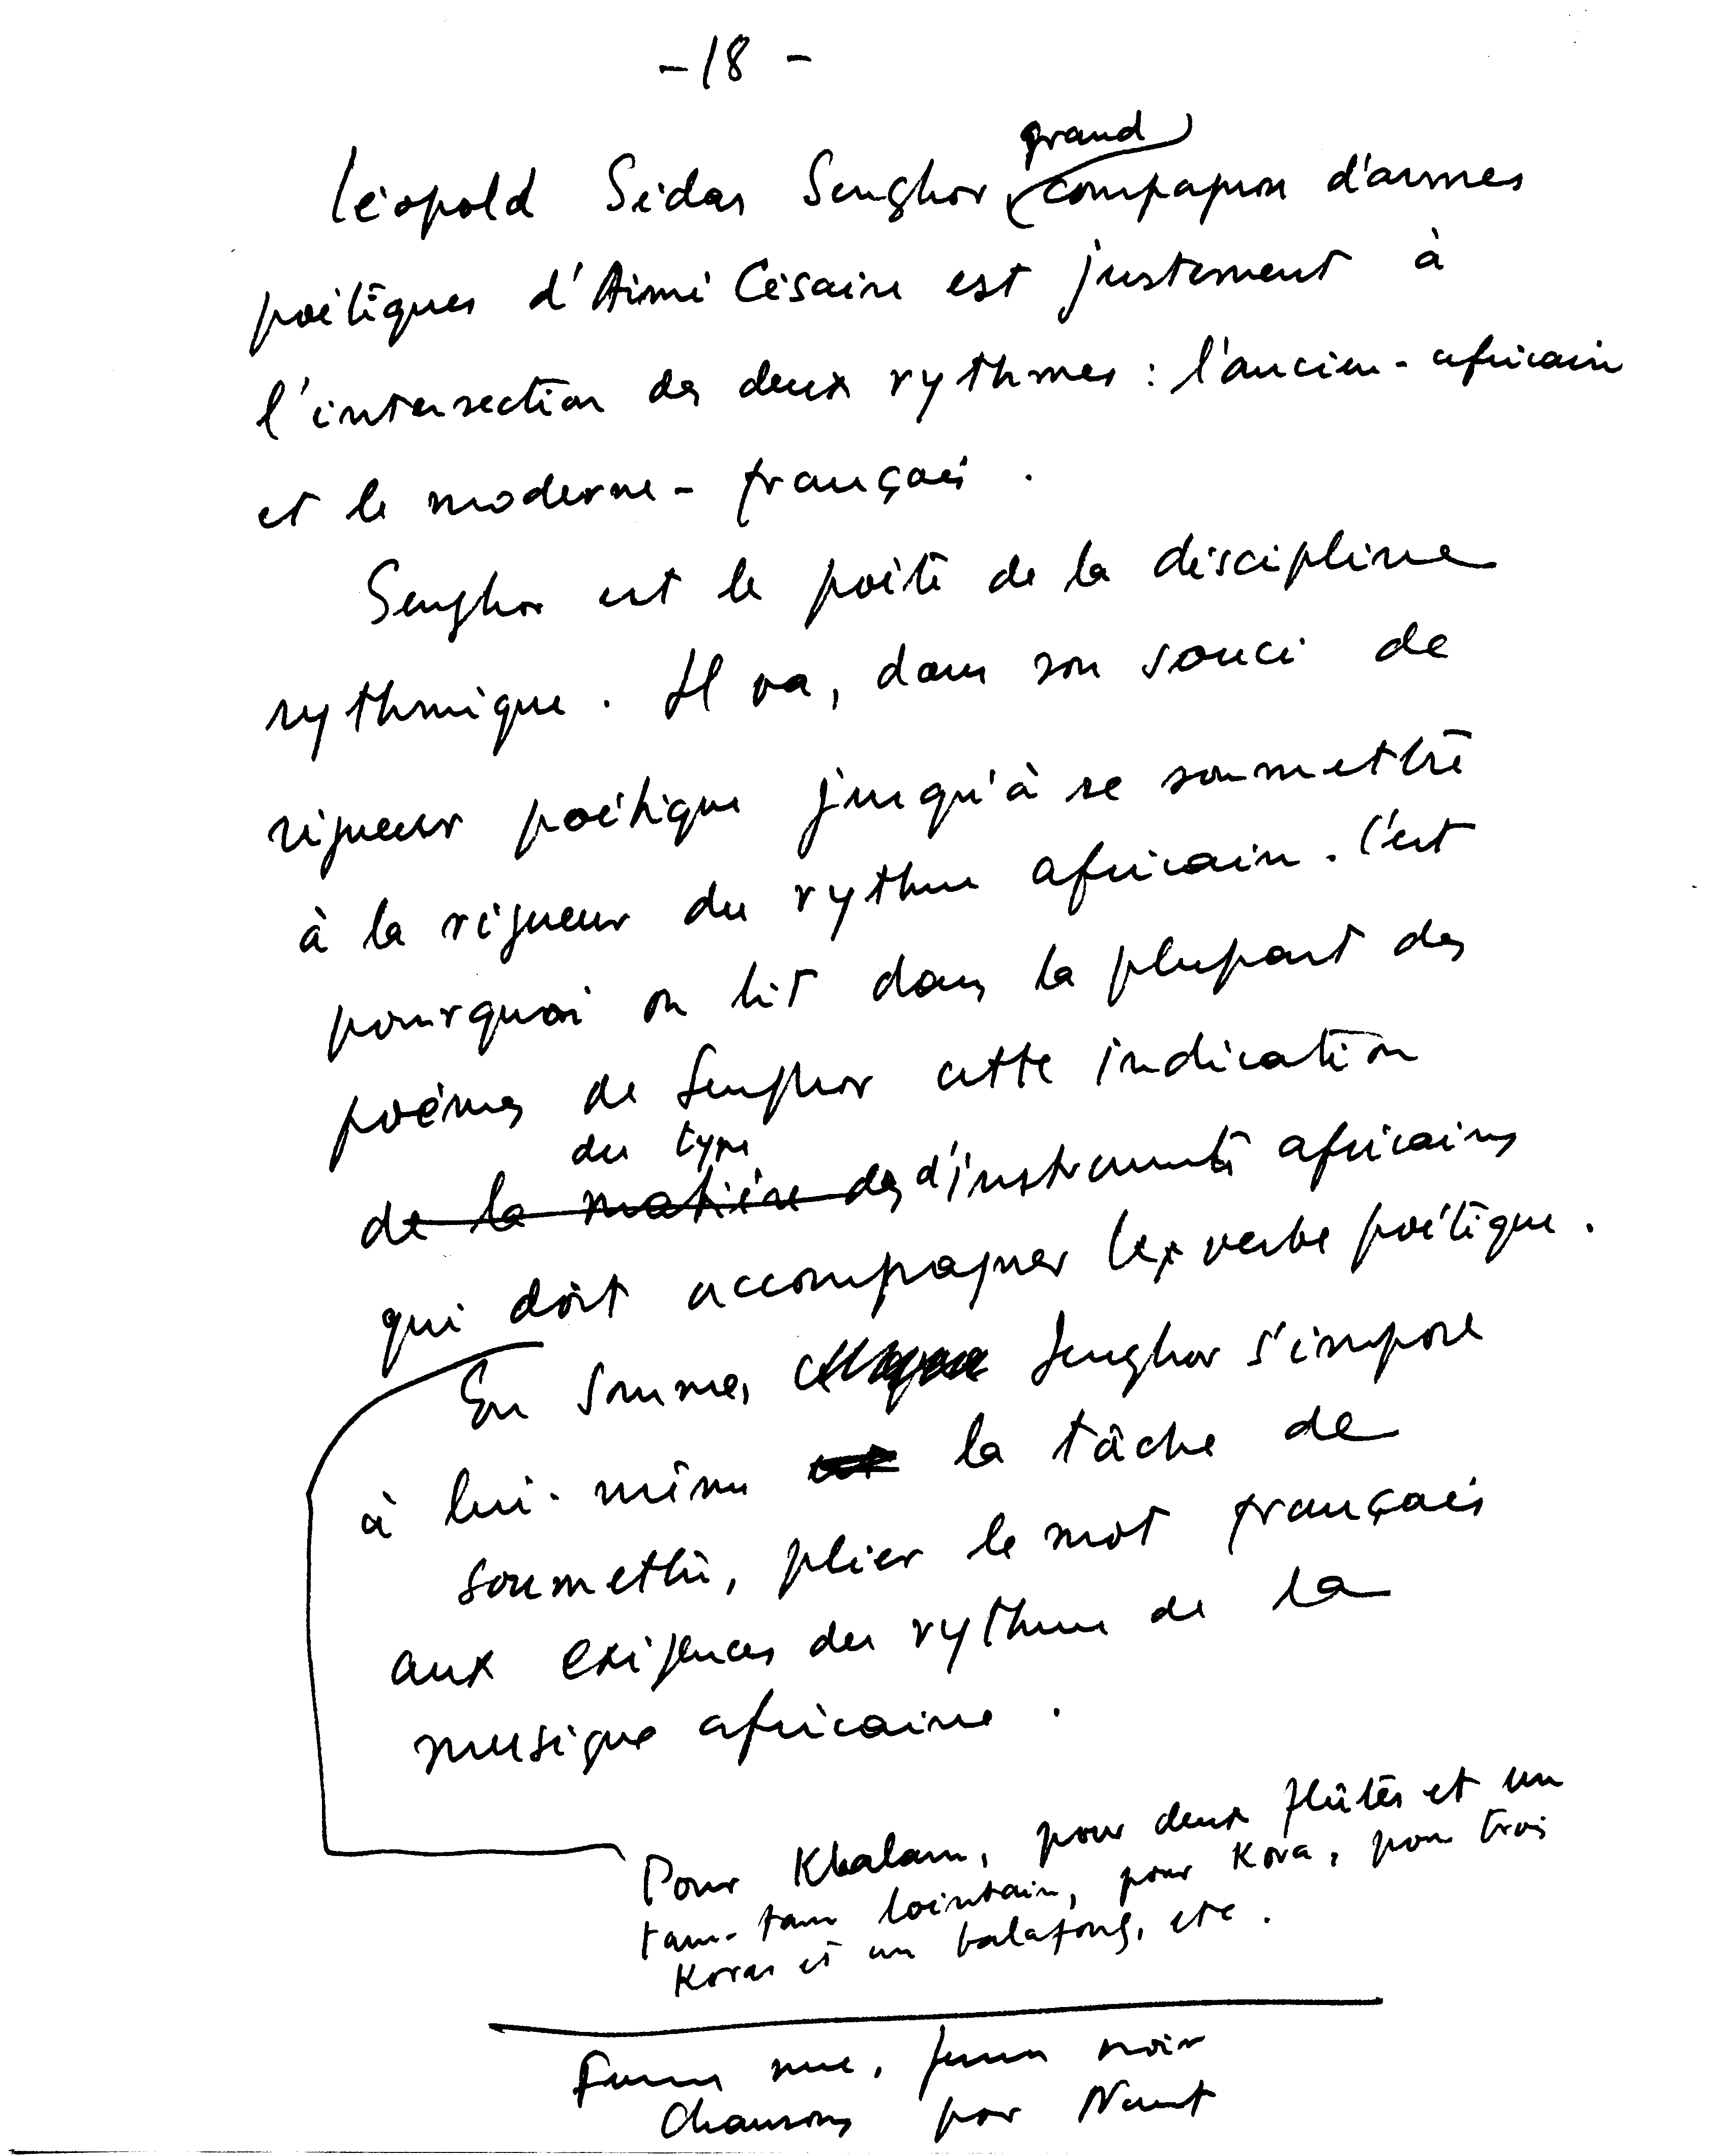 - 18 -
grand
Léopold Sédar Senghor compagnon d'armes
poétiques d'Aimé Césaire est justement à
l'intersection des deux rythmes : l'ancien-africain
et le moderne-français.
Senghor est le poète de la discipline
rythmique. Il va, dans son souci de
rigueur poétique jusqu'à se soumettre
à la rigueur du rythme africain. C'est
pourquoi on lit dans la plupart des
poèmes de Senghor cette indication
du type
de la matière des d'instruments africains
qui doit accompagner le verbe poétique.
En somme, Senghor s'impose
à lui-même la tâche de
soumettre, plier le mot français
aux exigences du rythme de la
musique africaine.
Pour Khalam, pour deux flûtes et un
tam-tam lointain, pour Kora, pour trois
Koras et un balafong, etc.
Femme nue, femme noire
Chansons par